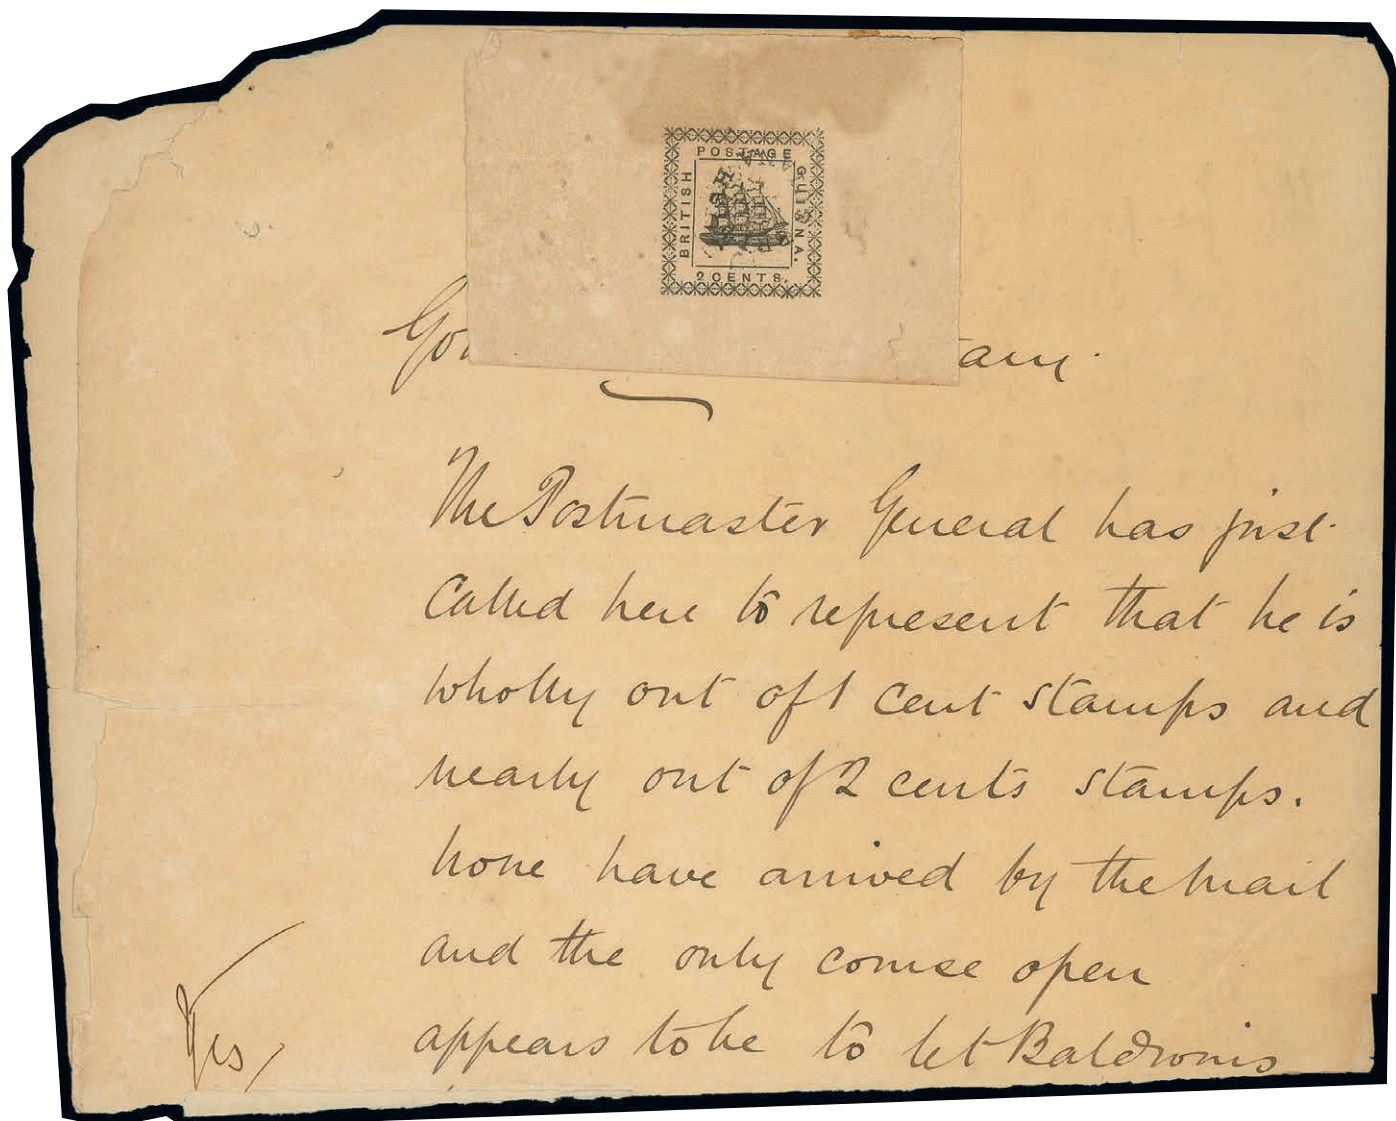 POSTAGE
BRITISH
GUIANA.
2 CENTS.
The Postmaster General has just
called here to represent that he is
wholly out of 1 cent stamps and
nearly out of 2 cents stamps.
None have arrived by the mail
and the only course open
appears to be to let Baldwins
Yes,